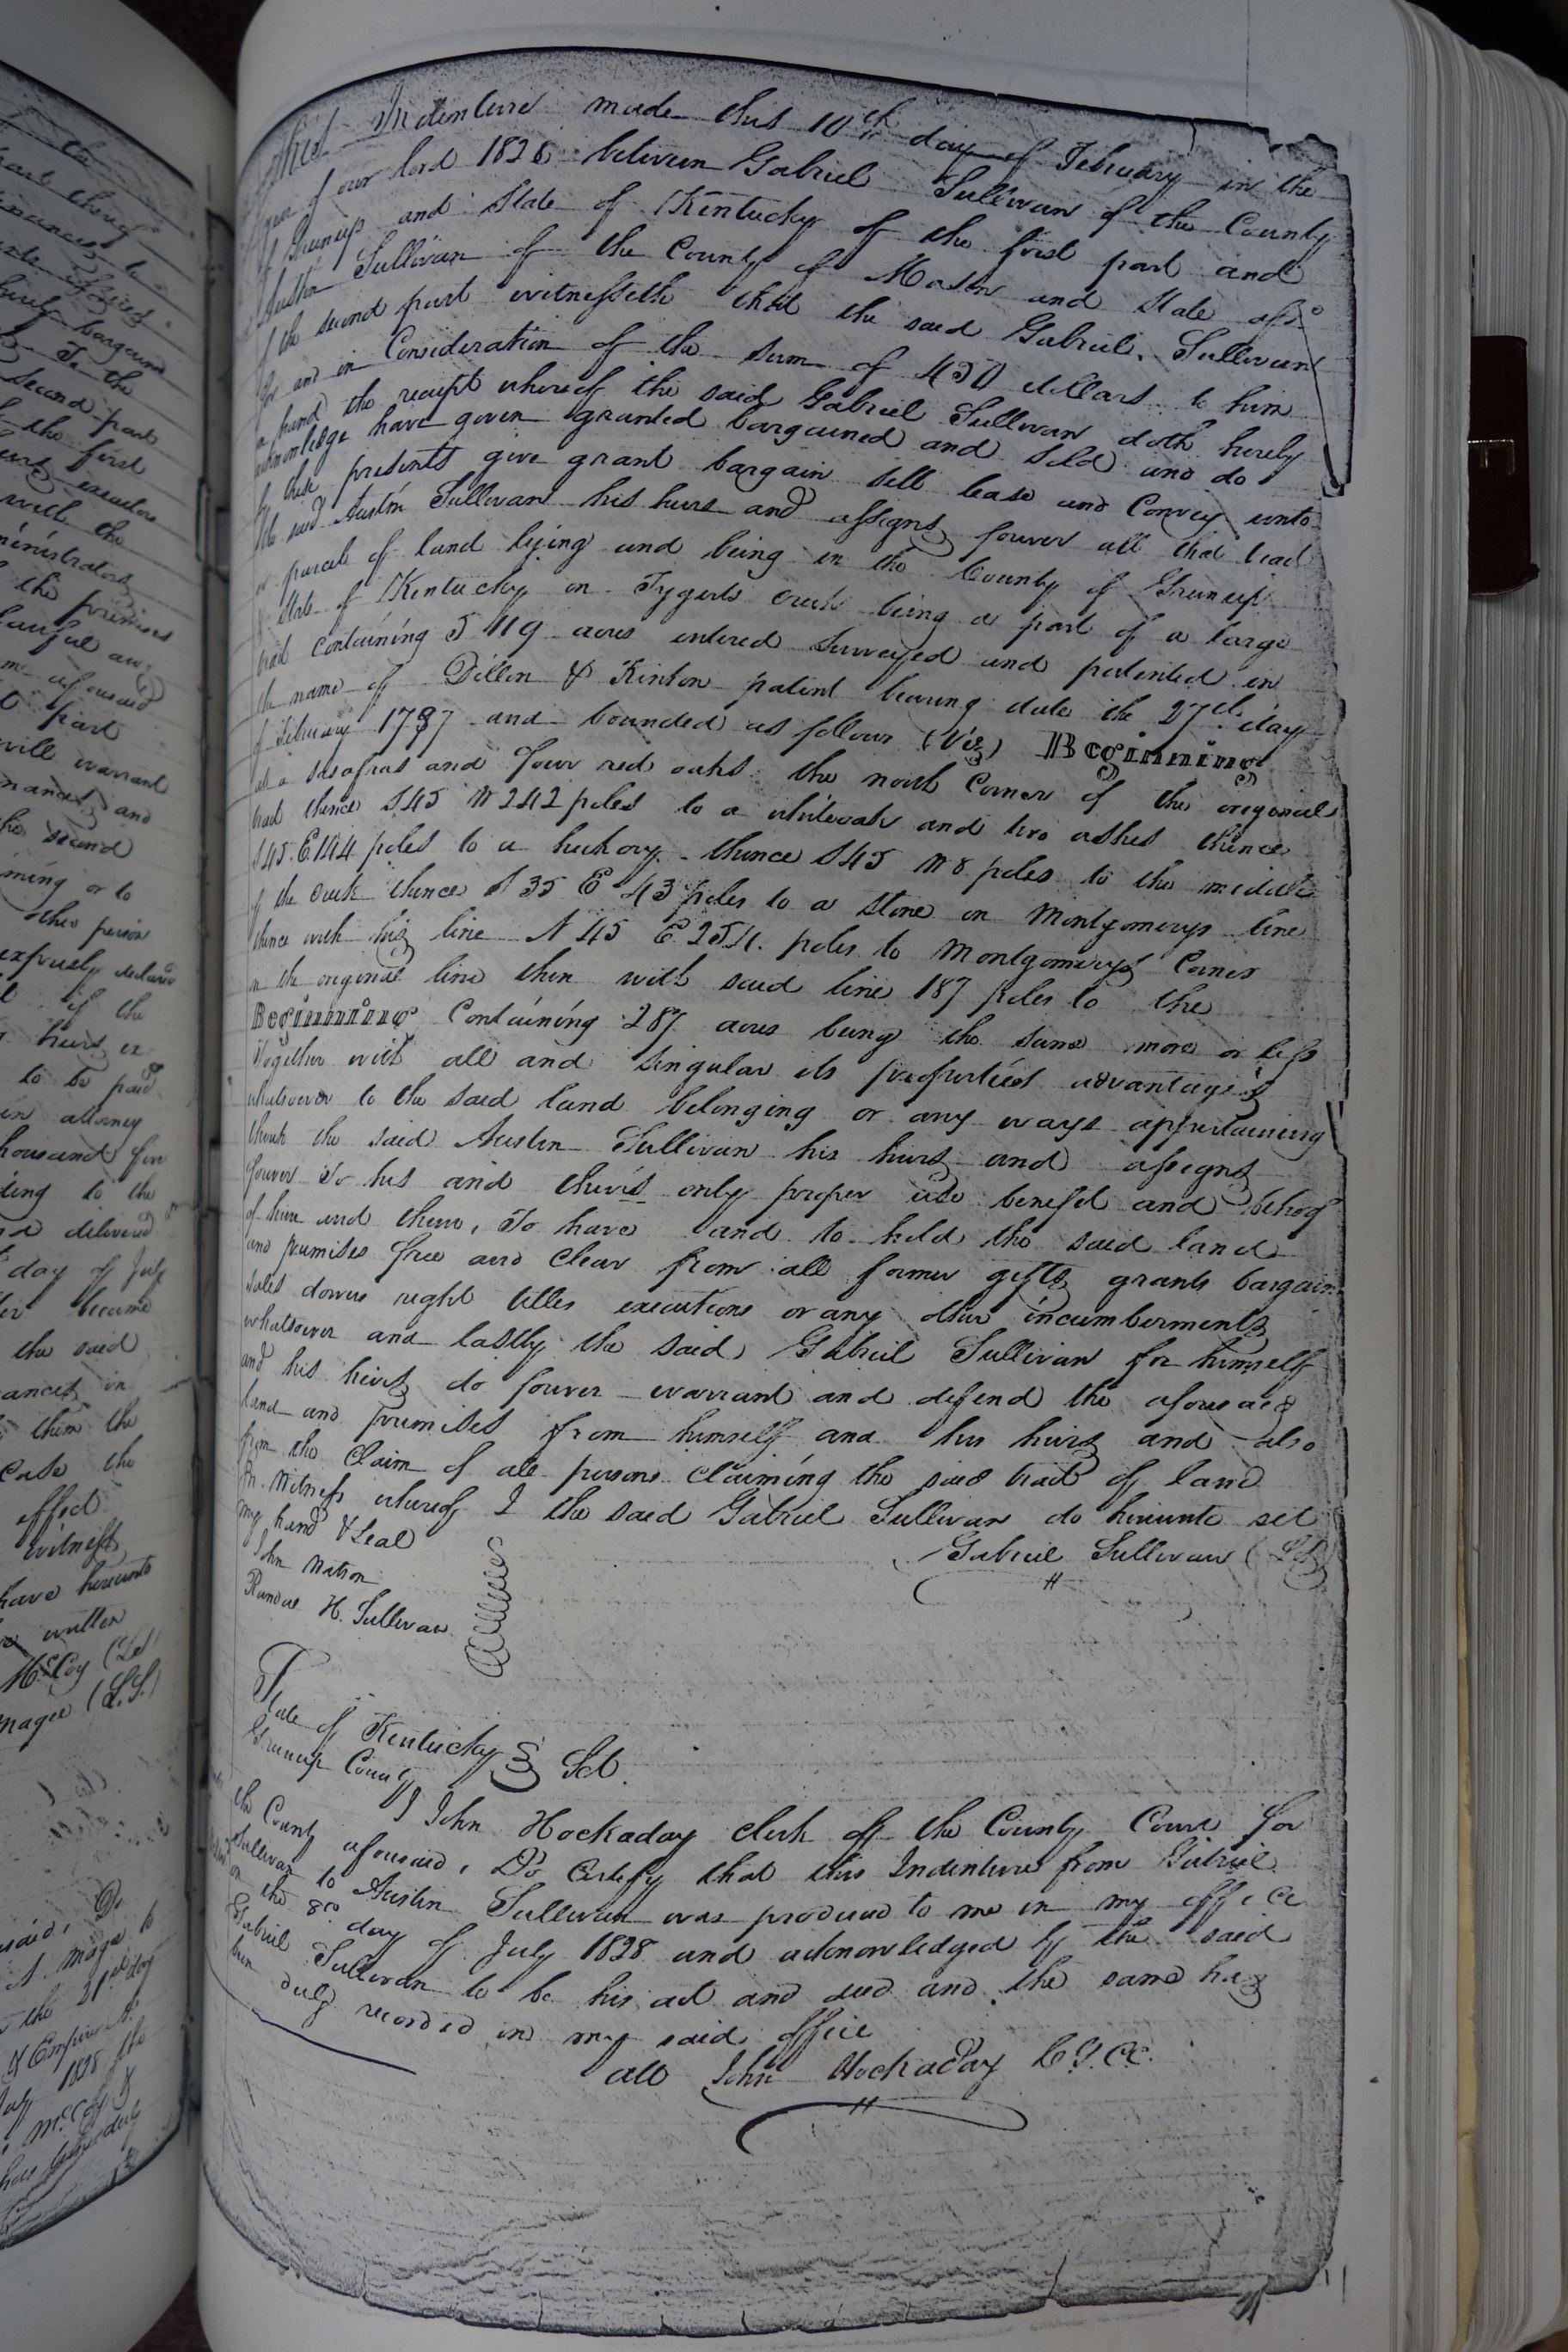 the
part
second part
the first
executors
will the
ministrators
the premises
lawful
aforesaid
t part
will warrant
and
the second
ming or to
other person
expressly declared
if the
heirs ex
to be paid
in attorney
thousand five
ding to the
delivered
day of July
became
the said
ances in
them the
case the
effect
witness
have hereunto
written
McCoy (LS)
Magee (L.S.)
said, Do
A. Magee to
the 21st day
July 1828 the
McCoy &
have been duly
This Indenture made this 10th day of February in the
year of our lord 1826 between Gabriel Sullivan of the County
of Greenup and State of Kentucky of the first part and
Austin Sullivan of the County of Mason and State afso
of the second part witnesseth that the said Gabriel Sullivan
for and in Consideration of the sum of 450 dollars to him
in hand the receipt whereof the said Gabriel Sullivan doth hereby
acknowledge have given granted bargained and sold and do
by these presents give grant bargain sell lease and Convey unto
the said Austin Sullivan his heirs and assigns forever all that tract
or parcel of land lying and being in the County of Greenup
& State of Kentucky on Tygerts creek being a part of a large
tract containing 5119 acres entered surveyed and patented in
the name of Dillon & Kinton patent bearing date the 27th day
of February 1787 and bounded as follows (Viz) Beginning
at a sasafras and four red oaks the north Corner of the original
tract thence S45 W 242 poles to a whiteoak and two ashes thence
S45. E. 144 poles to a hickory thence S45 W 8 poles to the middle
of the creek thence S 35 E 43 poles to a stone on Montgomerys line
thence with his line N 45 E 254 poles to Montgomerys Corner
in the original line then with said line 187 poles to the
Beginning Containing 287 acres being the same more or less
together with all and singular its properties advantages
whatsoever to the said land belonging or any ways appertaining
the said Austin Sullivan his heirs and assigns
forever to his and theirs only proper use benefit and behoof
of him and them, To have and to hold the said land
and premises free and clear from all former gifts grants bargain
sales dowers right titles executions or any other incumberments
whatsoever and lastly the said Gabriel Sullivan for himself
and his heirs do forever warrant and defend the aforesaid
land and premises from himself and his heirs and also
from the Claim of all persons claiming the said tract of land
In Witness whereof I the said Gabriel Sullivan do hereunto set
my hand & Seal
Gabriel Sullivan (LS)
John Matson
Randal H. Sullivan
State of Kentucky
Greenup County Sct.
I John Hockaday clerk of the County Court for
the County aforesaid, Do Certify that this Indenture from Gabriel
Sullivan to Austin Sullivan was produced to me in my office
on the day of July 1828 and acknowledged by the said
Gabriel Sullivan to be his act and deed and the same has
been duly recorded in my said office
att John Hockaday C.G.C.C.